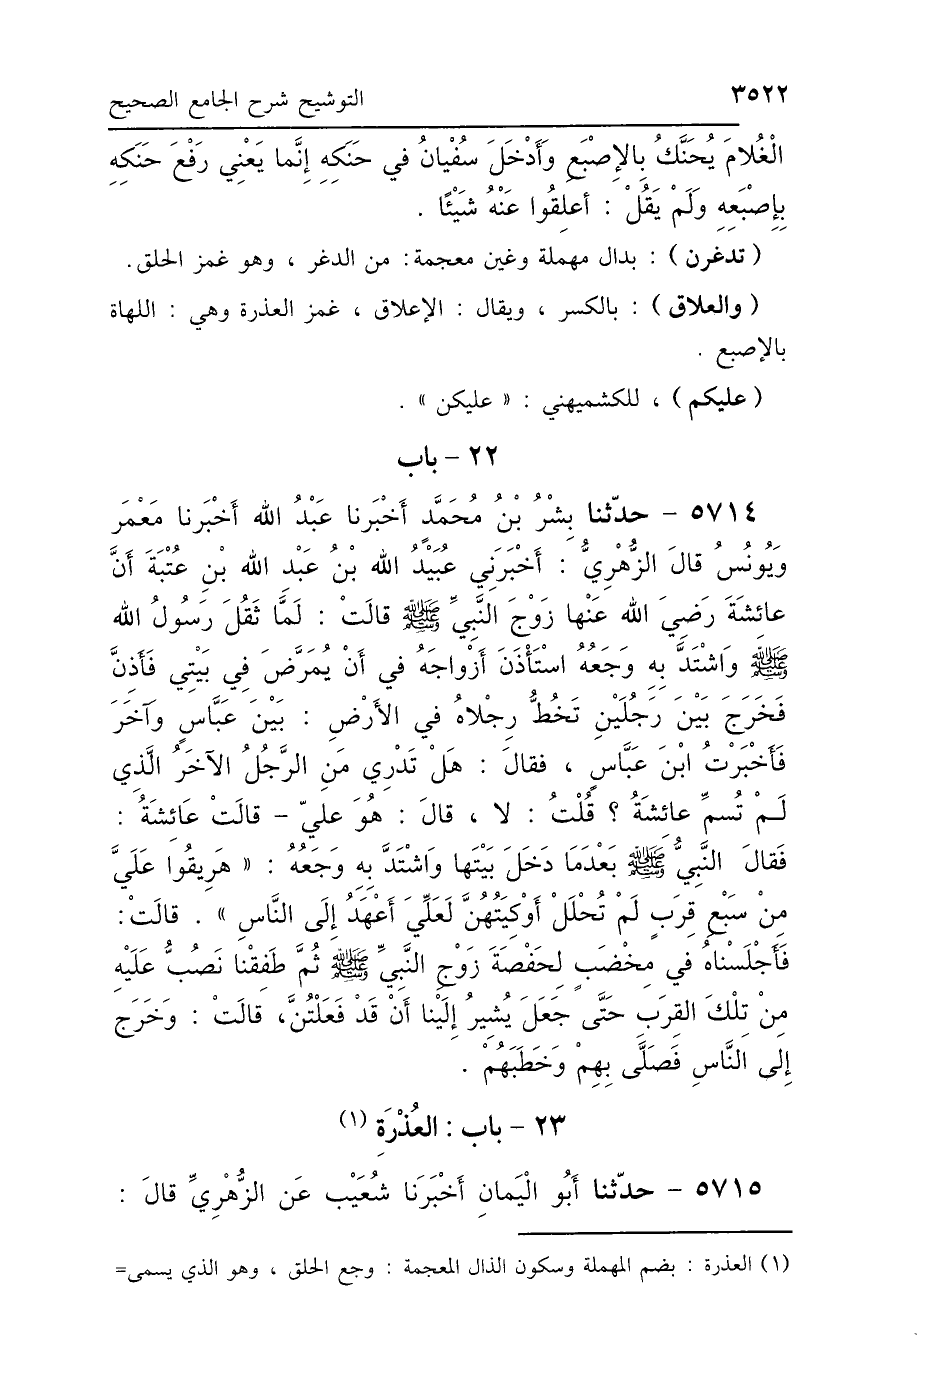 ٣٥٢٢ التوشيح شرح الجامع الصحيح
الْغُلامَ يُحَنَّكُ بِالإِصْبَعِ وَأَدْخَلَ سُفْيانُ في حَنَكِهِ إِنَّما يَعْنِي رَفْعَ حَنَكِهِ
بِإِصْبَعِهِ وَلَمْ يَقُلْ : أعلِقُوا عَنْهُ شَيْئًا .
( تدغرن ) : بدال مهملة وغين معجمة: من الدغر ، وهو غمز الحلق.
( والعلاق ) : بالكسر ، ويقال : الإعلاق ، غمز العذرة وهي : اللهاة
بالإصبع .
( عليكم ) ، للكشميهني : « عليكن » .
٢٢ – باب
٥٧١٤ – حدّثنا بِشْرُ بْنُ مُحَمَّدٍ أَخْبَرنا عَبْدُ الله أَخْبَرنا مَعْمَر
وَيُونُسُ قالَ الزُّهْرِيُّ : أَخْبَرَنِي عُبَيْدُ الله بْنُ عَبْدِ الله بْنِ عُتْبَةَ أَنَّ
عائِشَةَ رَضِيَ الله عَنْها زَوْجَ النَّبِيِّ ﷺ قالَتْ : لَمَّا ثَقُلَ رَسُولُ الله
ﷺ وَاشْتَدَّ بِهِ وَجَعُهُ اسْتَأْذَنَ أَزْواجَهُ في أَنْ يُمَرَّضَ فِي بَيْتِي فَأَذِنَّ
فَخَرَجَ بَيْنَ رَجُلَيْنِ تَخُطُّ رِجْلاهُ في الأَرْضِ : بَيْنَ عَبَّاسٍ وآخَرَ
فَأَخْبَرْتُ ابْنَ عَبَّاسٍ ، فقالَ : هَلْ تَدْرِي مَنِ الرَّجُلُ الآخَرُ الَّذِي
لَـمْ تُسمِّ عائِشَةُ ؟ قُلْتُ : لا ، قالَ : هُوَ عليّ – قالَتْ عَائِشَةُ :
فَقالَ النَّبِيُّ ﷺ بَعْدَمَا دَخَلَ بَيْتَها وَاشْتَدَّ بِهِ وَجَعُهُ : « هَرِيقُوا عَلَيَّ
مِنْ سَبْعِ قِرَبٍ لَمْ تُحْلَلْ أَوْكِيَتُهُنَّ لَعَلِّي أَعْهَدُ إِلَى النَّاسِ » . قالَتْ:
فَأَجْلَسْناهُ في مِخْضَبٍ لِحَفْصَةَ زَوْجِ النَّبِيِّ ﷺ ثُمَّ طَفِقْنا نَصُبُّ عَلَيْهِ
مِنْ تِلْكَ القِرَبِ حَتَّى جَعَلَ يُشِيرُ إِلَيْنا أَنْ قَدْ فَعَلْتُنَّ، قالَتْ : وَخَرَج
إِلى النَّاسِ فَصَلَّى بِهِمْ وَخَطَبَهُمْ .
٢٣ – باب : العُذْرَةِ (١)
٥٧١٥ – حدّثنا أَبُو الْيَمانِ أَخْبَرَنا شُعَيْب عَنِ الزُّهْرِيِّ قالَ :
(١) العذرة : بضم المهملة وسكون الذال المعجمة : وجع الحلق ، وهو الذي يسمى=